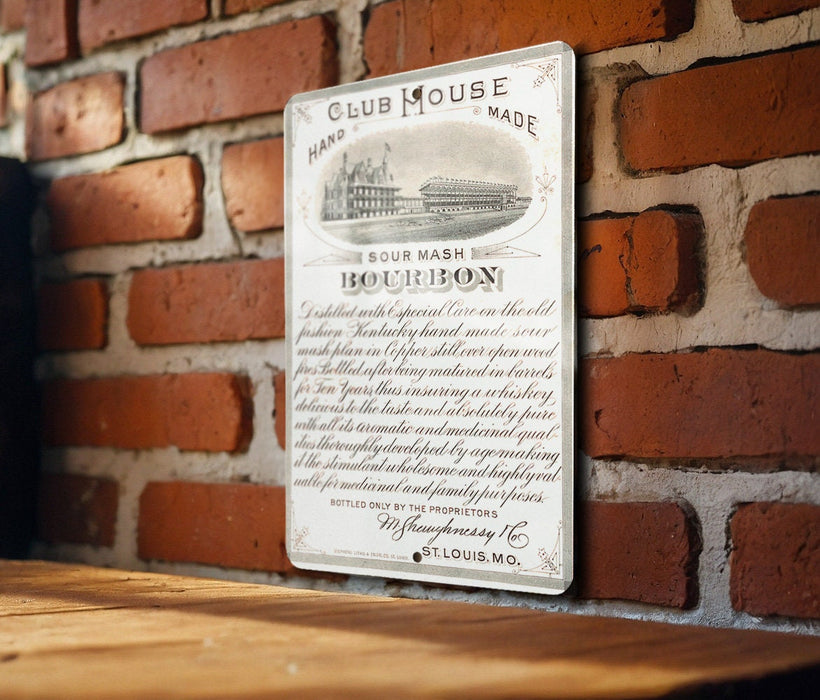 CLUB HOUSE
HAND MADE
SOUR MASH
BOURBON
Distilled with Especial Care on the old
fashion Kentucky hand made sour
mash plan in Copper still over open wood
fires Bottled after being matured in barrels
for Ten Years thus insuring a whiskey,
delicious to the taste and absolutely pure
with all its aromatic and medicinal qual-
ities thoroughly developed by age making
it the stimulant wholesome and highly val
uable for medicinal and family purposes.
BOTTLED ONLY BY THE PROPRIETORS
M. Shaughnessy & Co
ST. LOUIS. MO.